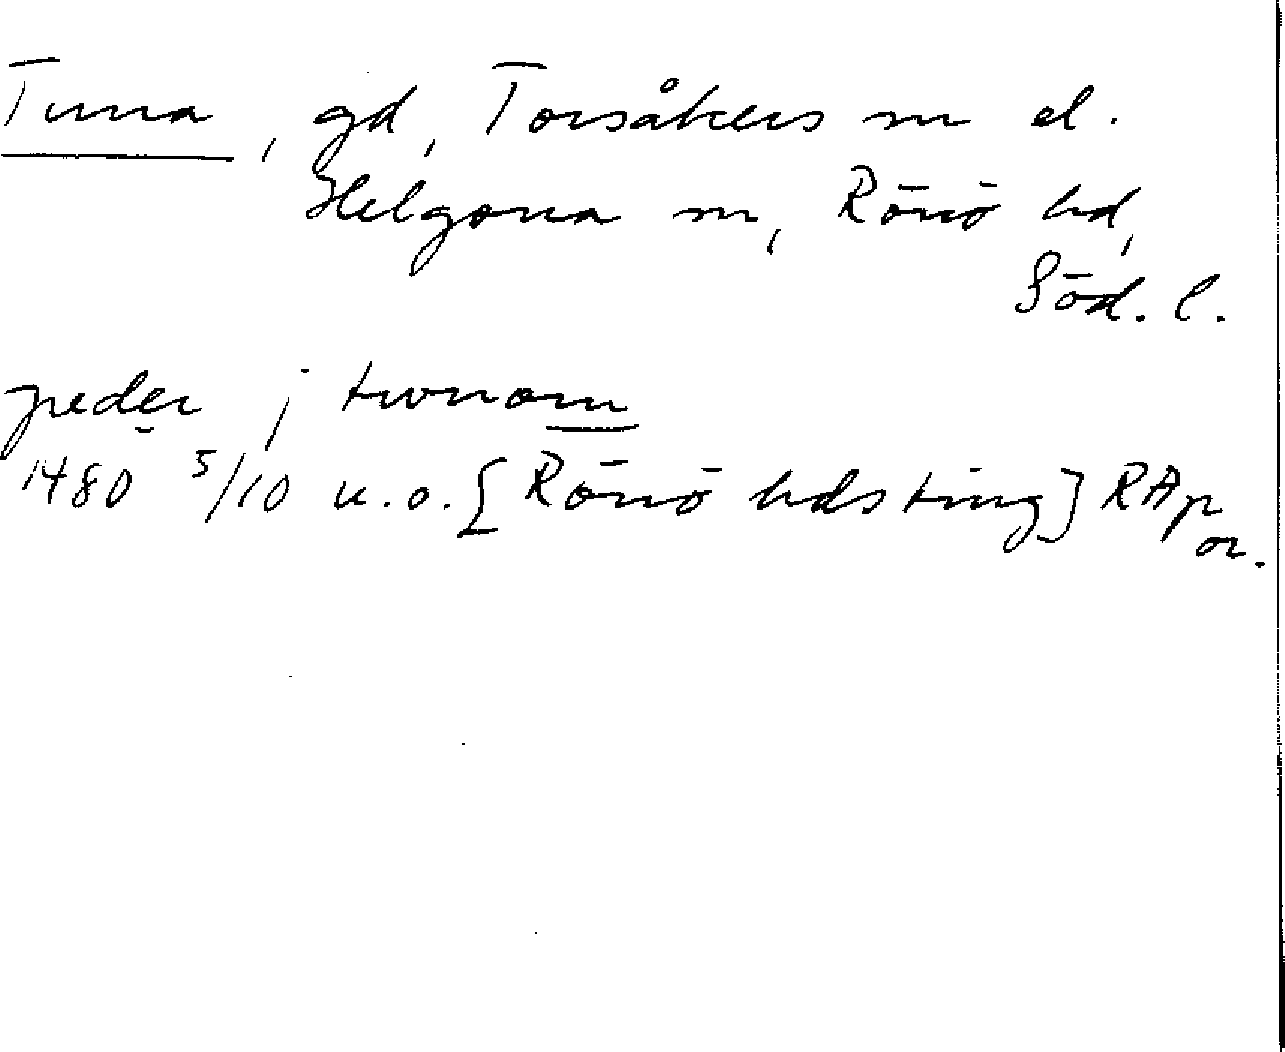 Tuna, gd, Torsåkers sn el.
Helgona sn, Rönö hd,
Söd. l.
peder j twnom
1480 5/10 u.o. [Rönö hds ting] RAp
or.